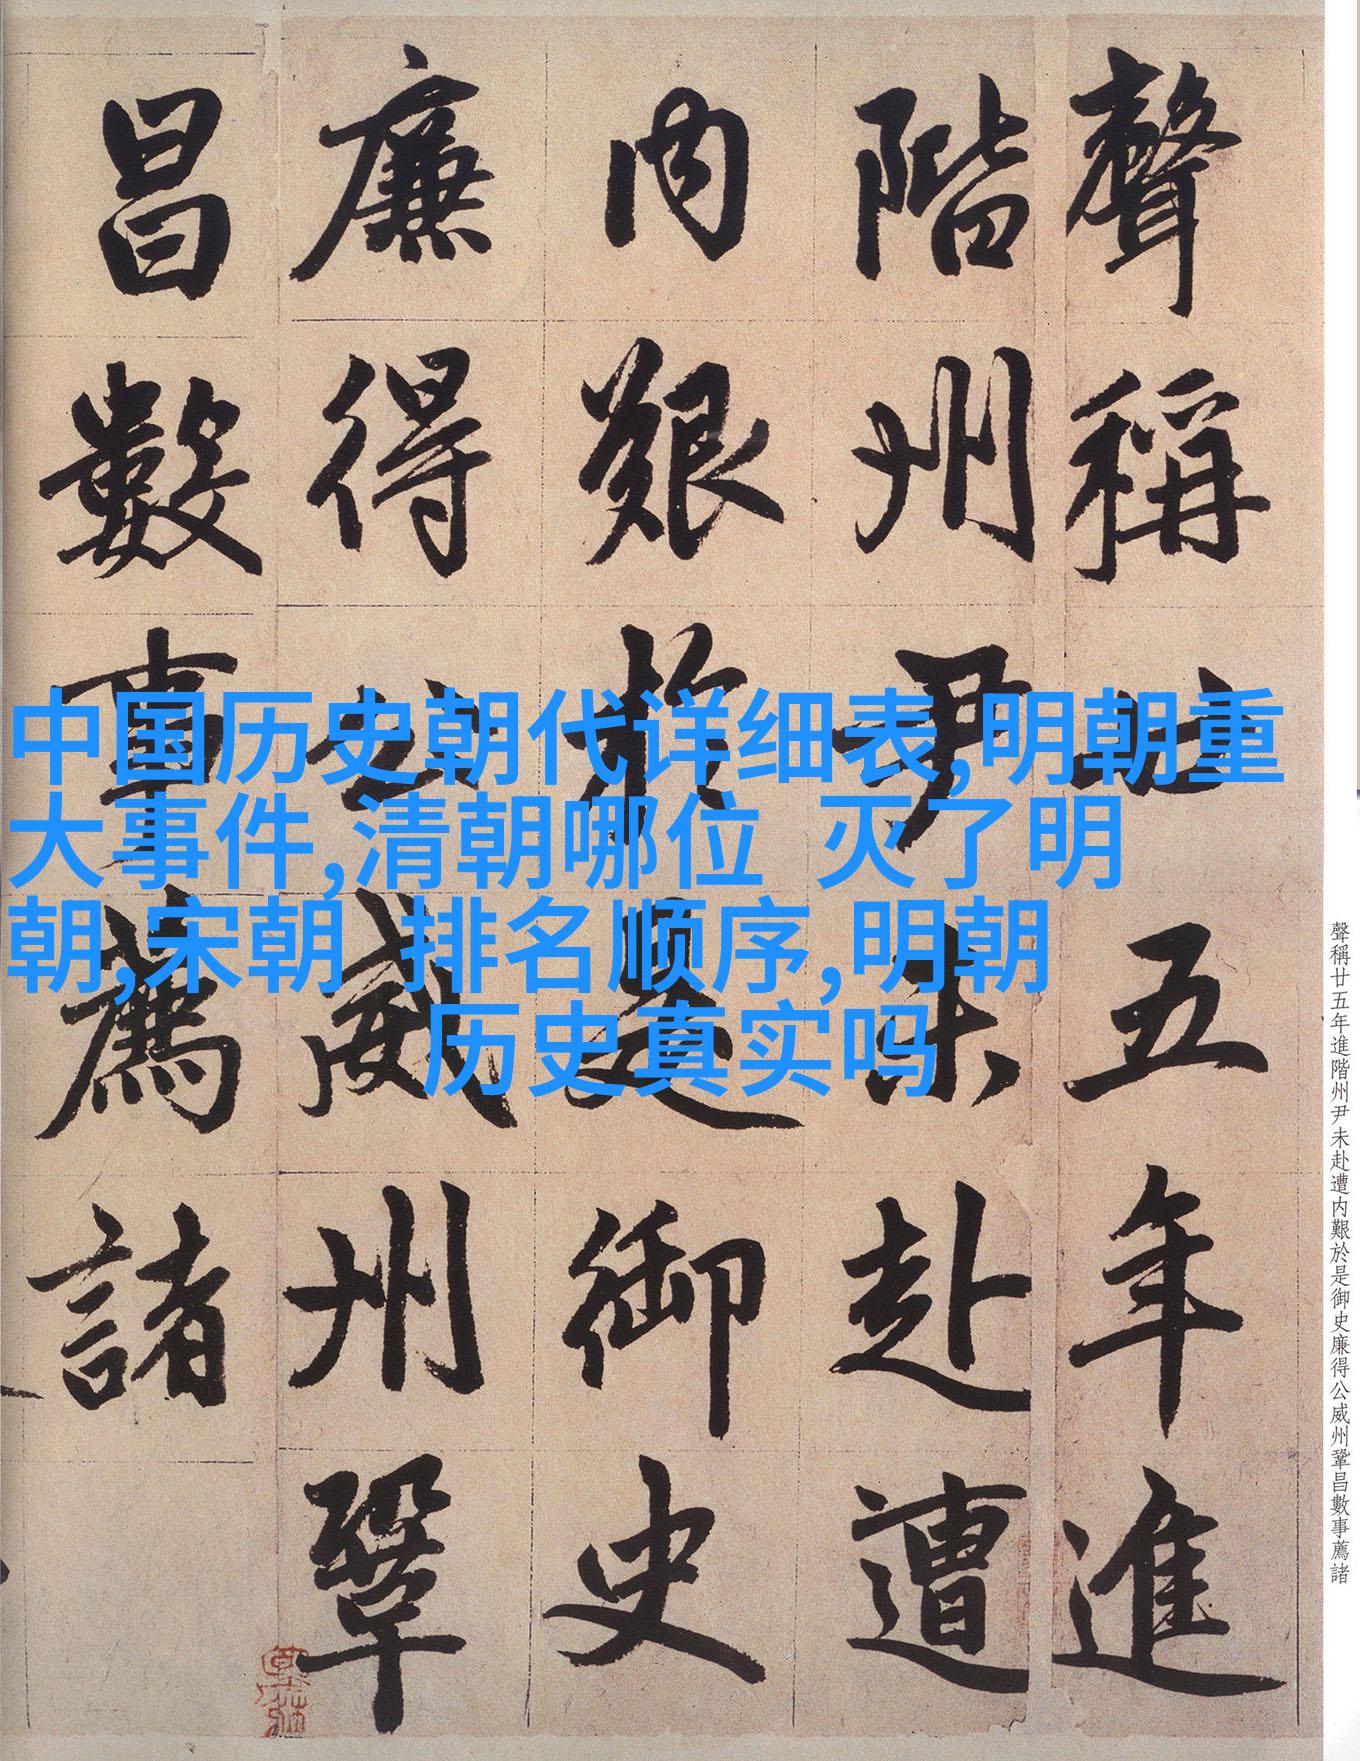 聲稱廿五年進
階州尹未赴遭
内艱於是御史
廉得公威州鞏
昌數事薦諸
中国历史朝代详细表,明朝重
大事件,清朝哪位 灭了明
朝,宋朝 排名顺序,明朝
历史真实吗
聲稱廿五年進階州尹未赴遭内艱於是御史廉得公威州鞏昌數事薦諸